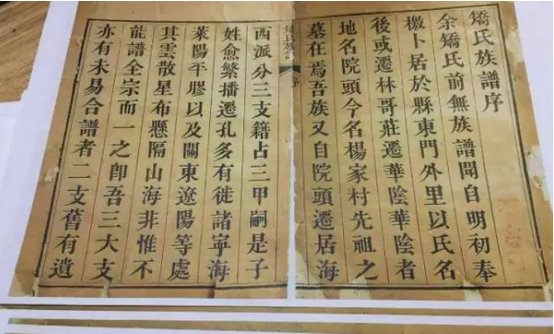 矯氏族譜序
余矯氏前無族譜聞自明初奉
檄卜居於縣東門外里以氏名
後或遷林哥莊遷華陰華陰者
地名院頭今名楊家村先祖之
墓在焉吾族又自院頭遷居海
序
西派分三支籍占三甲嗣是子
姓愈繁播遷孔多有徙諸寧海
萊陽平膠以及關東遼陽等處
其雲散星布懸隔山海非惟不
能譜全宗而一之即吾三大支
亦有未易合譜者二支舊有遺